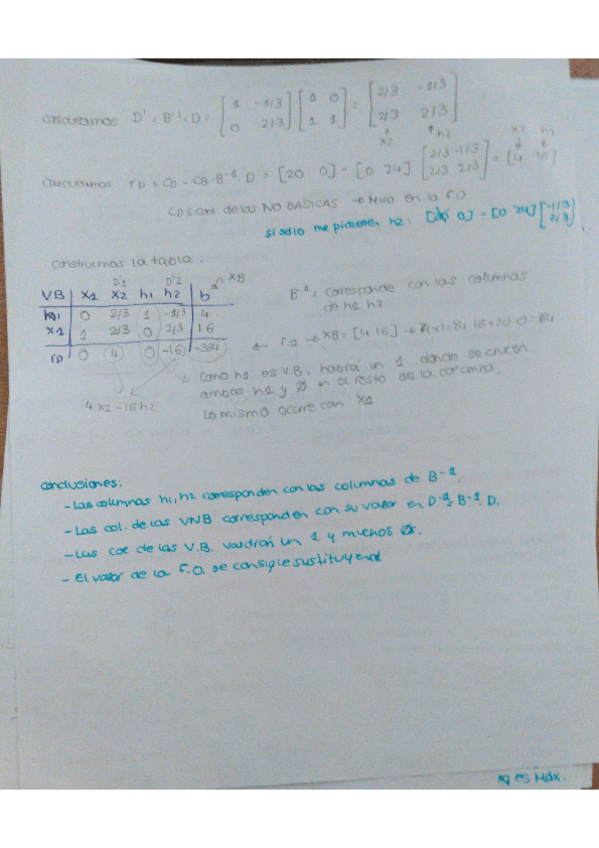 Calculamos D' = B⁻¹·D = [1 -1/3; 0 2/3] [1 0; 1 1] = [2/3 -1/3; 2/3 2/3]
x2 h2
Calculamos rD = CD - CB·B⁻¹·D = [20 0] - [0 24] [2/3 -1/3; 2/3 2/3] = [4 -16]
x2 h2
CD = Coef de las NO BÁSICAS → Mira en la F.O
si sólo me pidiesen h2: 0] - [0 24] [-1/3; 2/3]
Construimos la tabla:
D'1 D'2 XB
VB x1 x2 h1 h2 b
h1 0 2/3 1 -1/3 4
x1 1 2/3 0 2/3 16
rD 0 4 0 -16 -384
4x2 - 16h2
B⁻¹: Corresponde con las columnas
de h1 h2
XB = [4 16]
Como h1 es VB, habrá un 1 donde se crucen
ambos h1 y 0 en el resto de la columna.
Lo mismo ocurre con x1
conclusiones:
- Las columnas h1, h2 corresponden con las columnas de B⁻¹.
- Las col. de las VNB corresponden con su valor en B⁻¹·D.
- Las de las V.B. valdrán un 1 y muchos 0s.
- El valor de la F.O. se consigue sustituyend
es Máx.